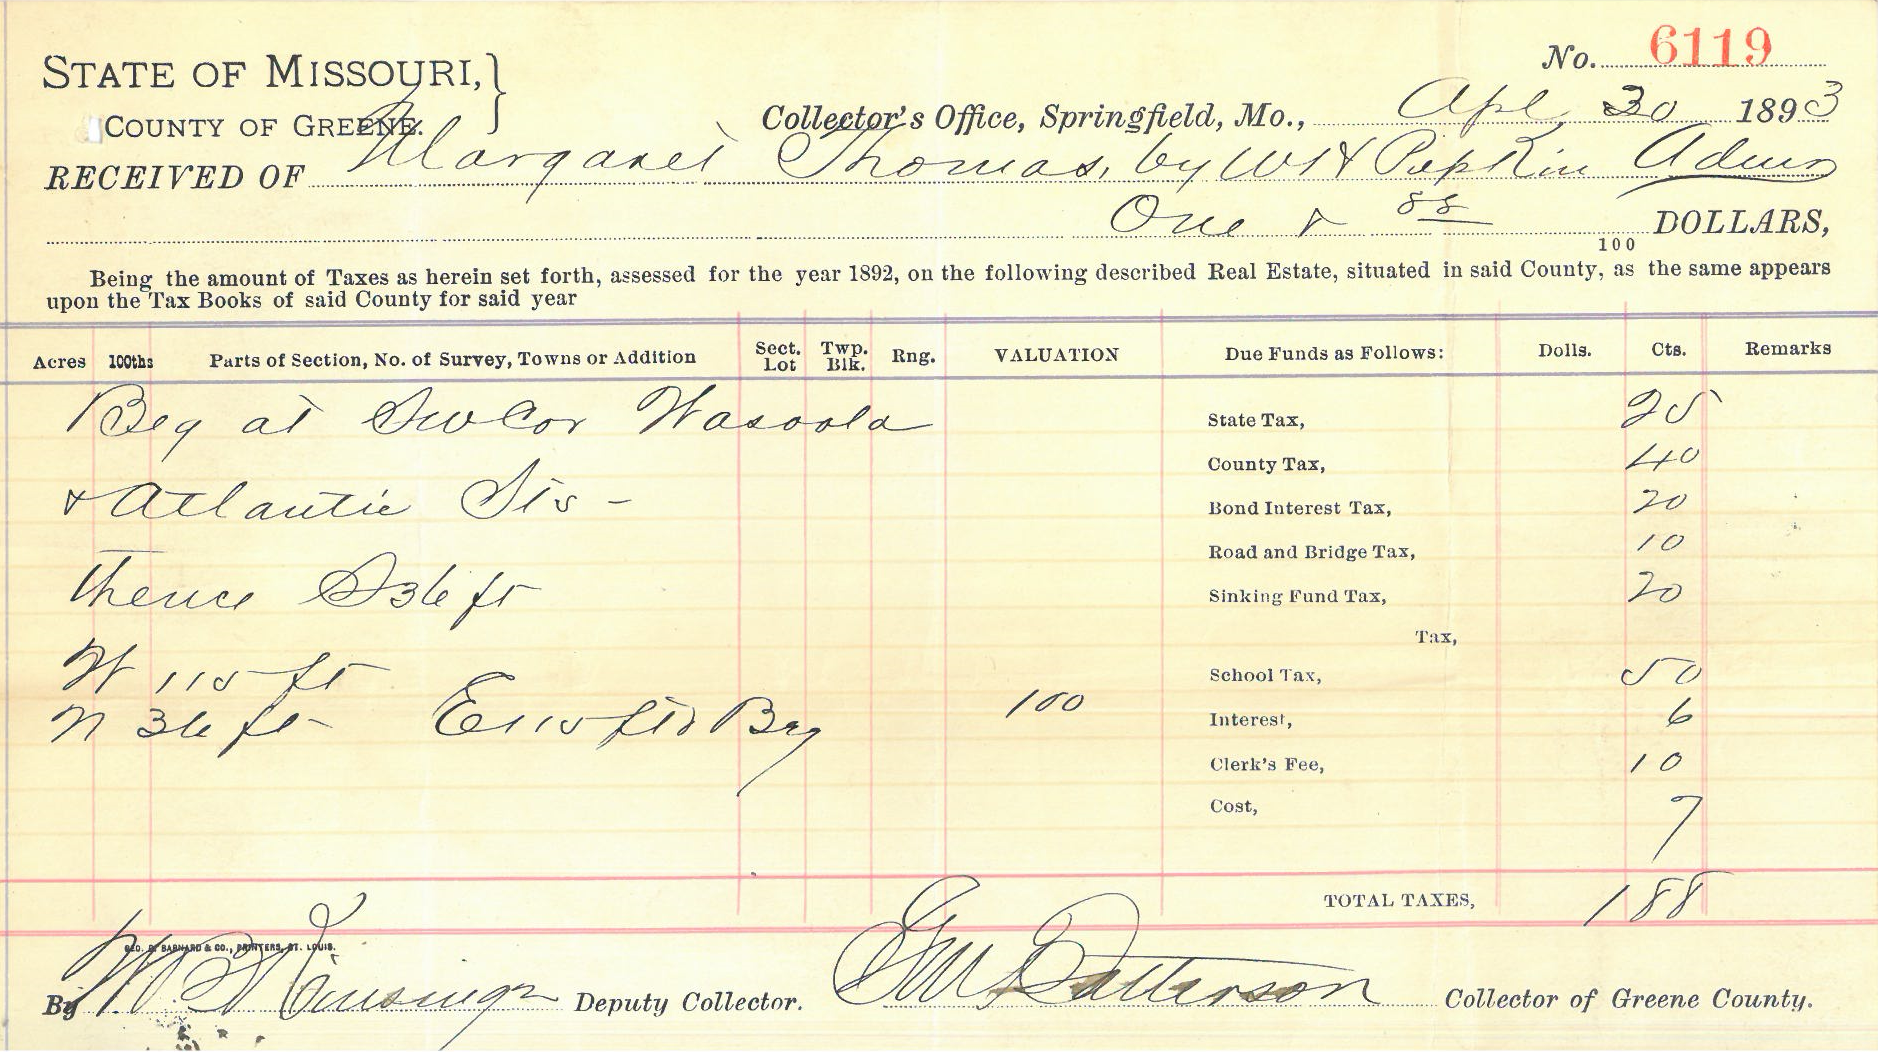 No. 6119
STATE OF MISSOURI,
COUNTY OF GREENE.
Collector's Office, Springfield, Mo., Apl 30 1893
RECEIVED OF Margaret Thomas, by WH Pipkin Admr
One & 88/100 DOLLARS,
Being the amount of Taxes as herein set forth, assessed for the year 1892, on the following described Real Estate, situated in said County, as the same appears
upon the Tax Books of said County for said year
Acres 100ths Parts of Section, No. of Survey, Towns or Addition Sect. Lot Twp. Blk. Rng. VALUATION Due Funds as Follows: Dolls. Cts. Remarks
Beg at SW Cor Wasoola State Tax, 25
County Tax, 40
& Atlantic Sts - Bond Interest Tax, 20
Road and Bridge Tax, 10
Thence S 36 ft Sinking Fund Tax, 20
Tax,
W 115 ft School Tax, 50
N 36 ft E 115 ft to Beg 100 Interest, 6
Clerk's Fee, 10
Cost, 7
TOTAL TAXES, 188
GEO. D. BARNARD & CO., PRINTERS, ST. LOUIS.
By Deputy Collector. Patterson Collector of Greene County.